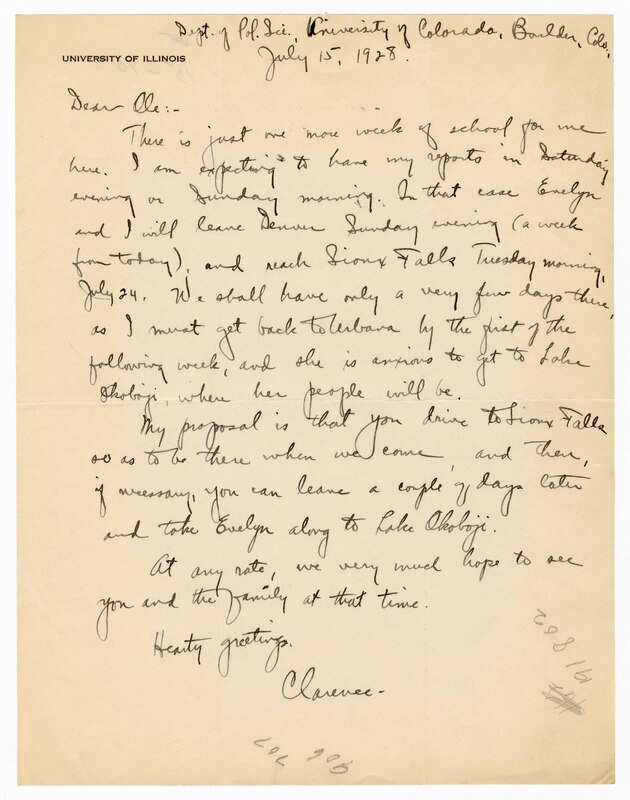 Dept. of Pol. Sci., University of Colorado, Boulder, Colo.,
UNIVERSITY OF ILLINOIS
July 15, 1928.
Dear Ole:-
There is just one more week of school for me
here. I am expecting to have my reports in Saturday
evening or Sunday morning. In that case Evelyn
and I will leave Denver Sunday evening (a week
from today), and reach Sioux Falls Tuesday morning,
July 24. We shall have only a very few days there,
as I must get back to Urbana by the first of the
following week, and she is anxious to get to Lake
Okoboji, where her people will be.
My proposal is that you drive to Sioux Falls
so as to be there when we come, and then,
if necessary, you can leave a couple of days later
and take Evelyn along to Lake Okoboji.
At any rate, we very much hope to see
you and the family at that time.
Hearty greetings.
Clarence-